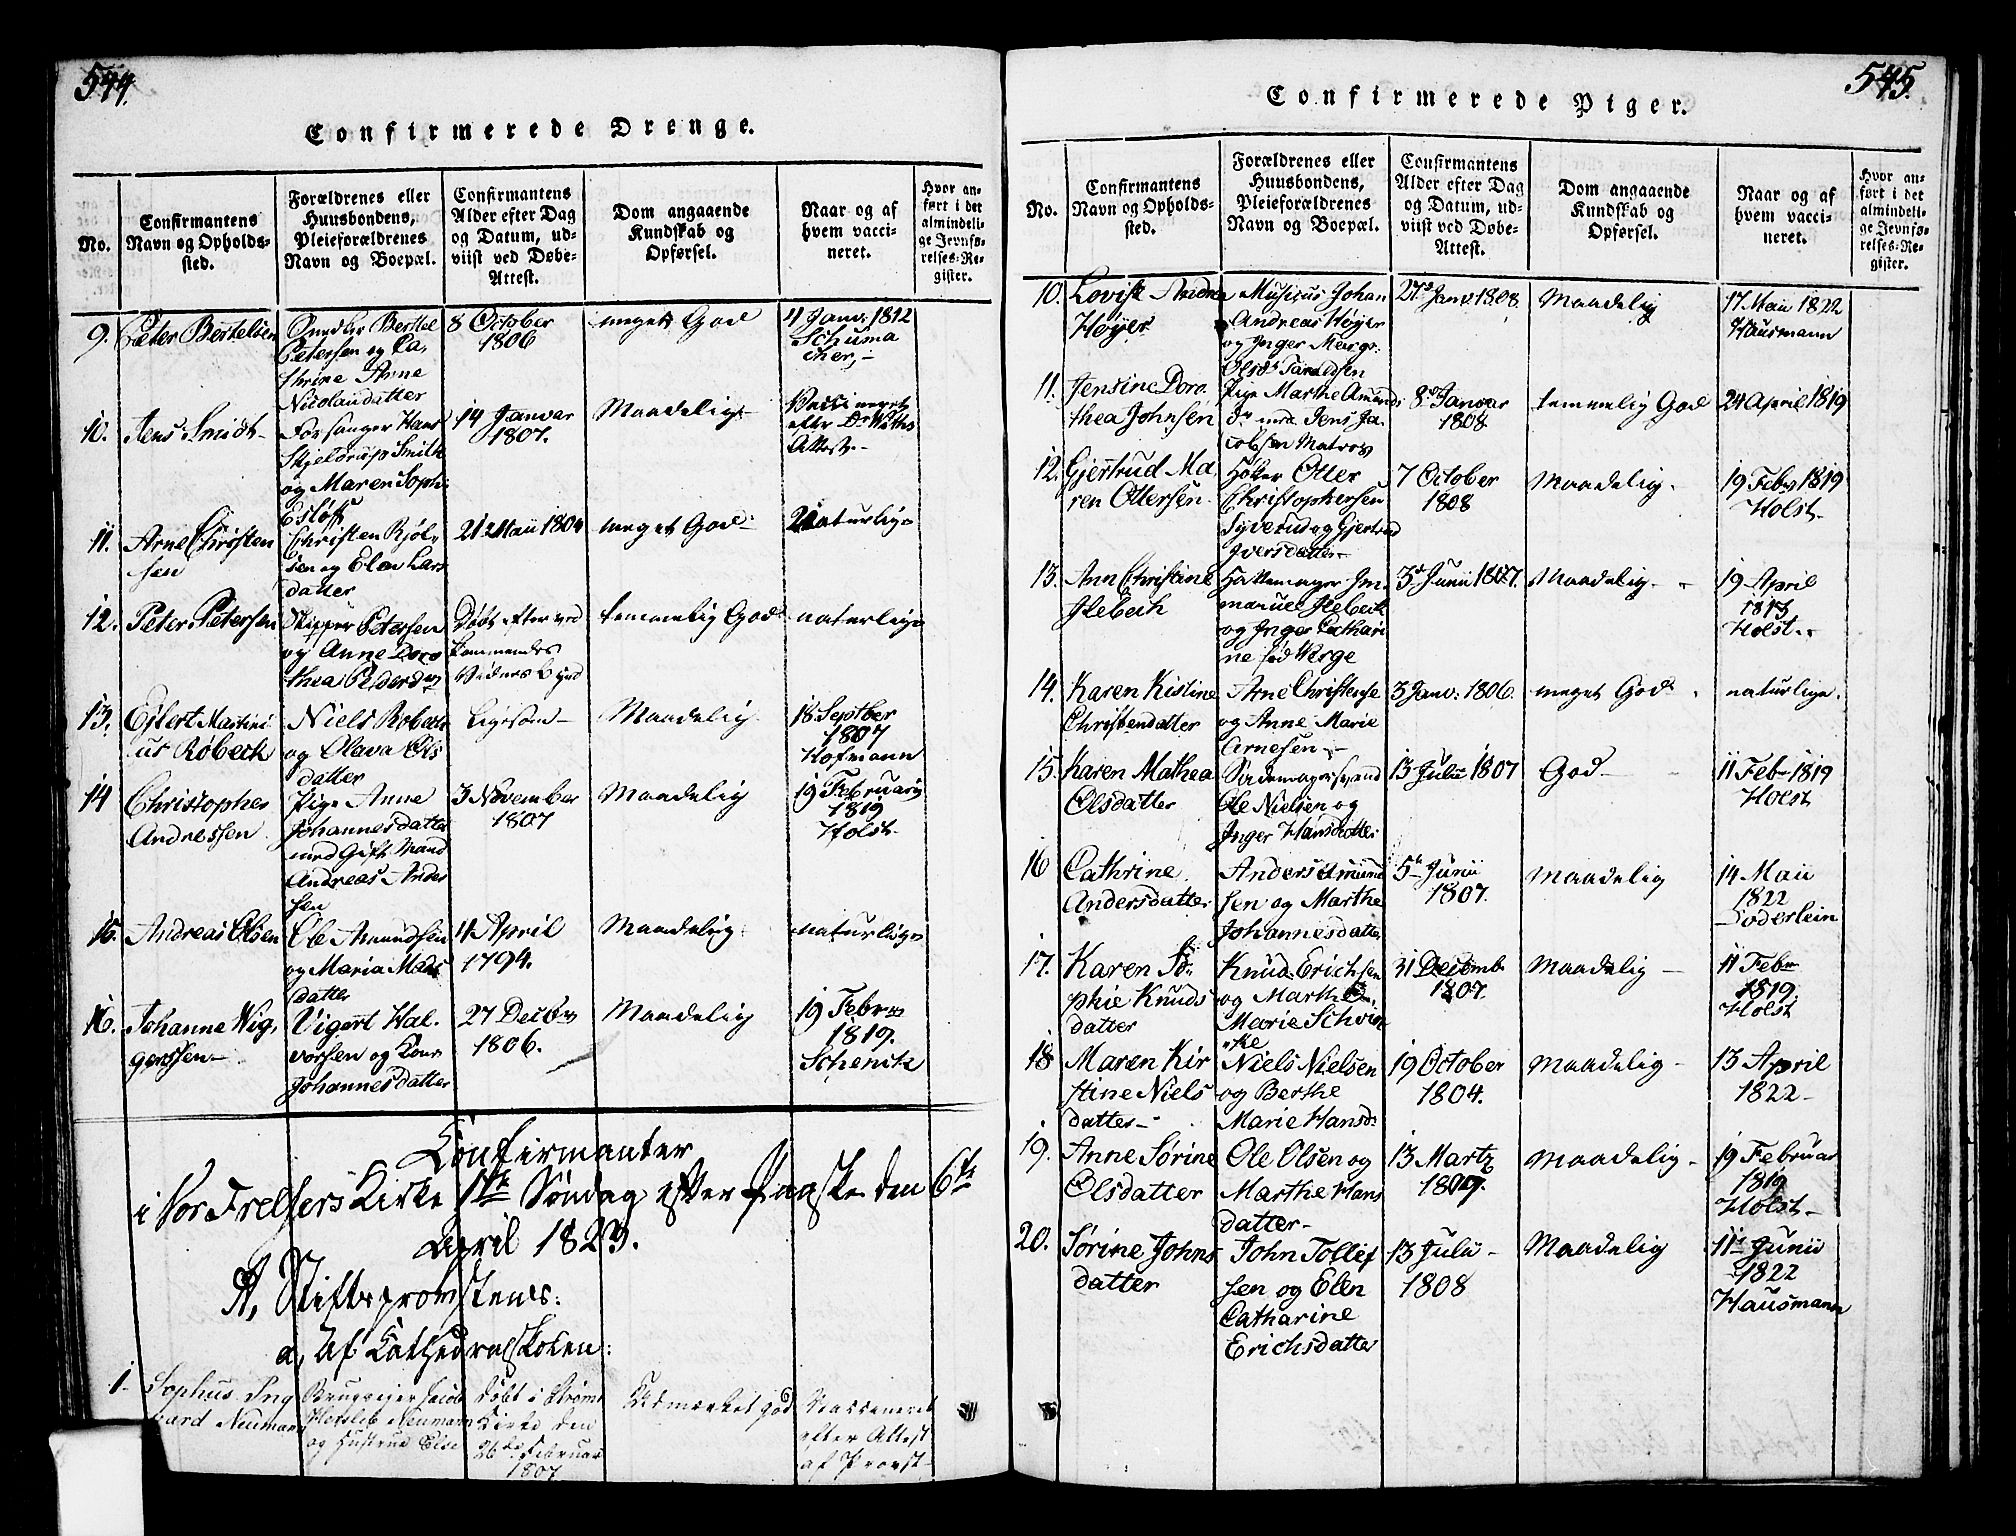 544.
Confirmerede Drenge.
No.
Confirmantens
Navn og Opholds-
sted.
Forældrenes eller
Huusbondens,
Pleieforældrenes
Navn og Boepæl.
Confirmantens
Alder efter Dag
og Datum, ud-
viist ved Døbe-
Attest.
Dom angaaende
Kundskab og
Opførsel.
Naar og af
hvem vacci-
neret.
Hvor an-
ført i det
almindeli-
ge Jevnfø-
relses-Re-
gister.
9.
Peter Bertelsen
Berthel
Petersen og Ca-
thrine Anne
Nicolaidatter
8 October
1806
meget God
11 Janv: 1812
Schuma
cher,-
10.
Jens Smidt-
Forsanger Hans
Skjeldrup Smith
og Maren Soph:
Esløff
14 Janvar
1807.
Maadelig-
Vaccineret
efter Dr
Attest-
11.
Arne Christen
sen
Christen Kjøl-
sen og Elen Lars
datter
21 Maii 1804
meget God
naturlig
12.
Peter Petersen
Skipper Petersen
og Anne Doro
thea Pedersd
Døbt efter ved
kommendes
Vidnesbyrd
temmelig God
naturlig
13.
Ejlert Martini
us Røbech
Niels Robech
og Olava Ols
datter
Ligesom-
Maadelig
18 Septber
1807
Hofmann
14
Christopher
Andressen
Pige Anne
Johannesdatter
med Gift Mand
Andreas Ander
sen
3 November
1807
Maadelig
19 Februarij
1819
Holst-
15.
Andreas Olsen
Ole Amundsen
og Maria Mads
datter
11 April
1794.
Maadelig
naturlig
16.
Johanne Wig,
gerssen-
Vigert Hal-
vorsen og
Johannesdatter
27 Decbr
1806.
Maadelig
19 Febr
1819.
Schenck
Confirmanter
i Vor Frelsers Kirke 1te Søndag efter Paaske den 6te
April 1823.
A, Stiftsprovstens:
a, Af Cathedralskolen:
1.
Sophus Ing
vard Neumann
Jacob
Hersleb Neumann
og Hustrue Else
Døbt i Strøms
Kirke den
26de Februar
1807
Udmærket god
Vaccineret
efter Attest
af Provst-
545.
Confirmerede Piger.
No.
Confirmantens
Navn og Opholds-
sted.
Forældrenes eller
Huusbondens,
Pleieforældrenes
Navn og Boepæl.
Confirmantens
Alder efter Dag
og Datum, ud-
viist ved Døbe-
Attest.
Dom angaaende
Kundskab og
Opførsel.
Naar og af
hvem vacci-
neret.
Hvor an-
ført i det
almindeli-
ge Jevnfø-
relses-Re-
gister.
10.
Lovise Andrea
Høyer
Musicus Johan
Andreas Høyer
og Inger Margr:
Olsdr
27 Janv 1808.
Maadelig
17 Maii 1822
Hausmann
11.
Jensine Doro
thea Johnsen
Pige Marthe Amunds
dr med Jens Ja
cobsen Matros
8 Januar
1808
temmelig God
24 April 1819
12.
Gjertrud Ma
ren Ottersen
Høker Otter
Christophersen
Syverud og Gjertrud
Iversdatter-
7 October
1808
Maadelig.
19 Febr 1819
Holst-
13.
Ann Christine
Ilebech
Hattemager Im
manuel Ilebech
og Inger Cathari
ne fød Werge
3 Junii 1807.
Maadelig-
19 April
1813
Holst-
14.
Karen Kistine
Christendatter
Arne Christense
og Anne Marie
Arnesen-
3 Janv: 1806.
meget God
naturlige.
15.
Karen Mathea
Olsdatter
Sademagersvend
Ole Nielsen og
Inger Hansdatter
13 Julii 1807
God-
11 Febr 1819
Holst
16
Cathrine
Andersdatter
Anders Amund
sen og Marthe
Johannesdatter
5 Junii
1807.
Maadelig
14 Maii
1822
Søderlein
17.
Karen So-
phie Knuds
datter
Knud Erichsen
og Marthe
Marie Schvin
ske
31 Decemb
1807.
Maadelig-
11 Febr
1819.
Holst
18
Maren Kir
stine Niels
datter-
Niels Nielsen
og Berthe
Marie Hansd:
19 October
1804.
Maadelig-
13 April
1822-
19.
Anne Sørine
Olsdatter
Ole Olsen og
Marthe Hans
datter-
13 Martz
1809.
Maadelig-
19 Februar
1819
Holst-
20.
Sørine Johns
datter
John Tollef
sen og Elen
Catharine
Erichsdatter
13 Julii-
1808
Maadelig
11 Junii
1822
Hausmann